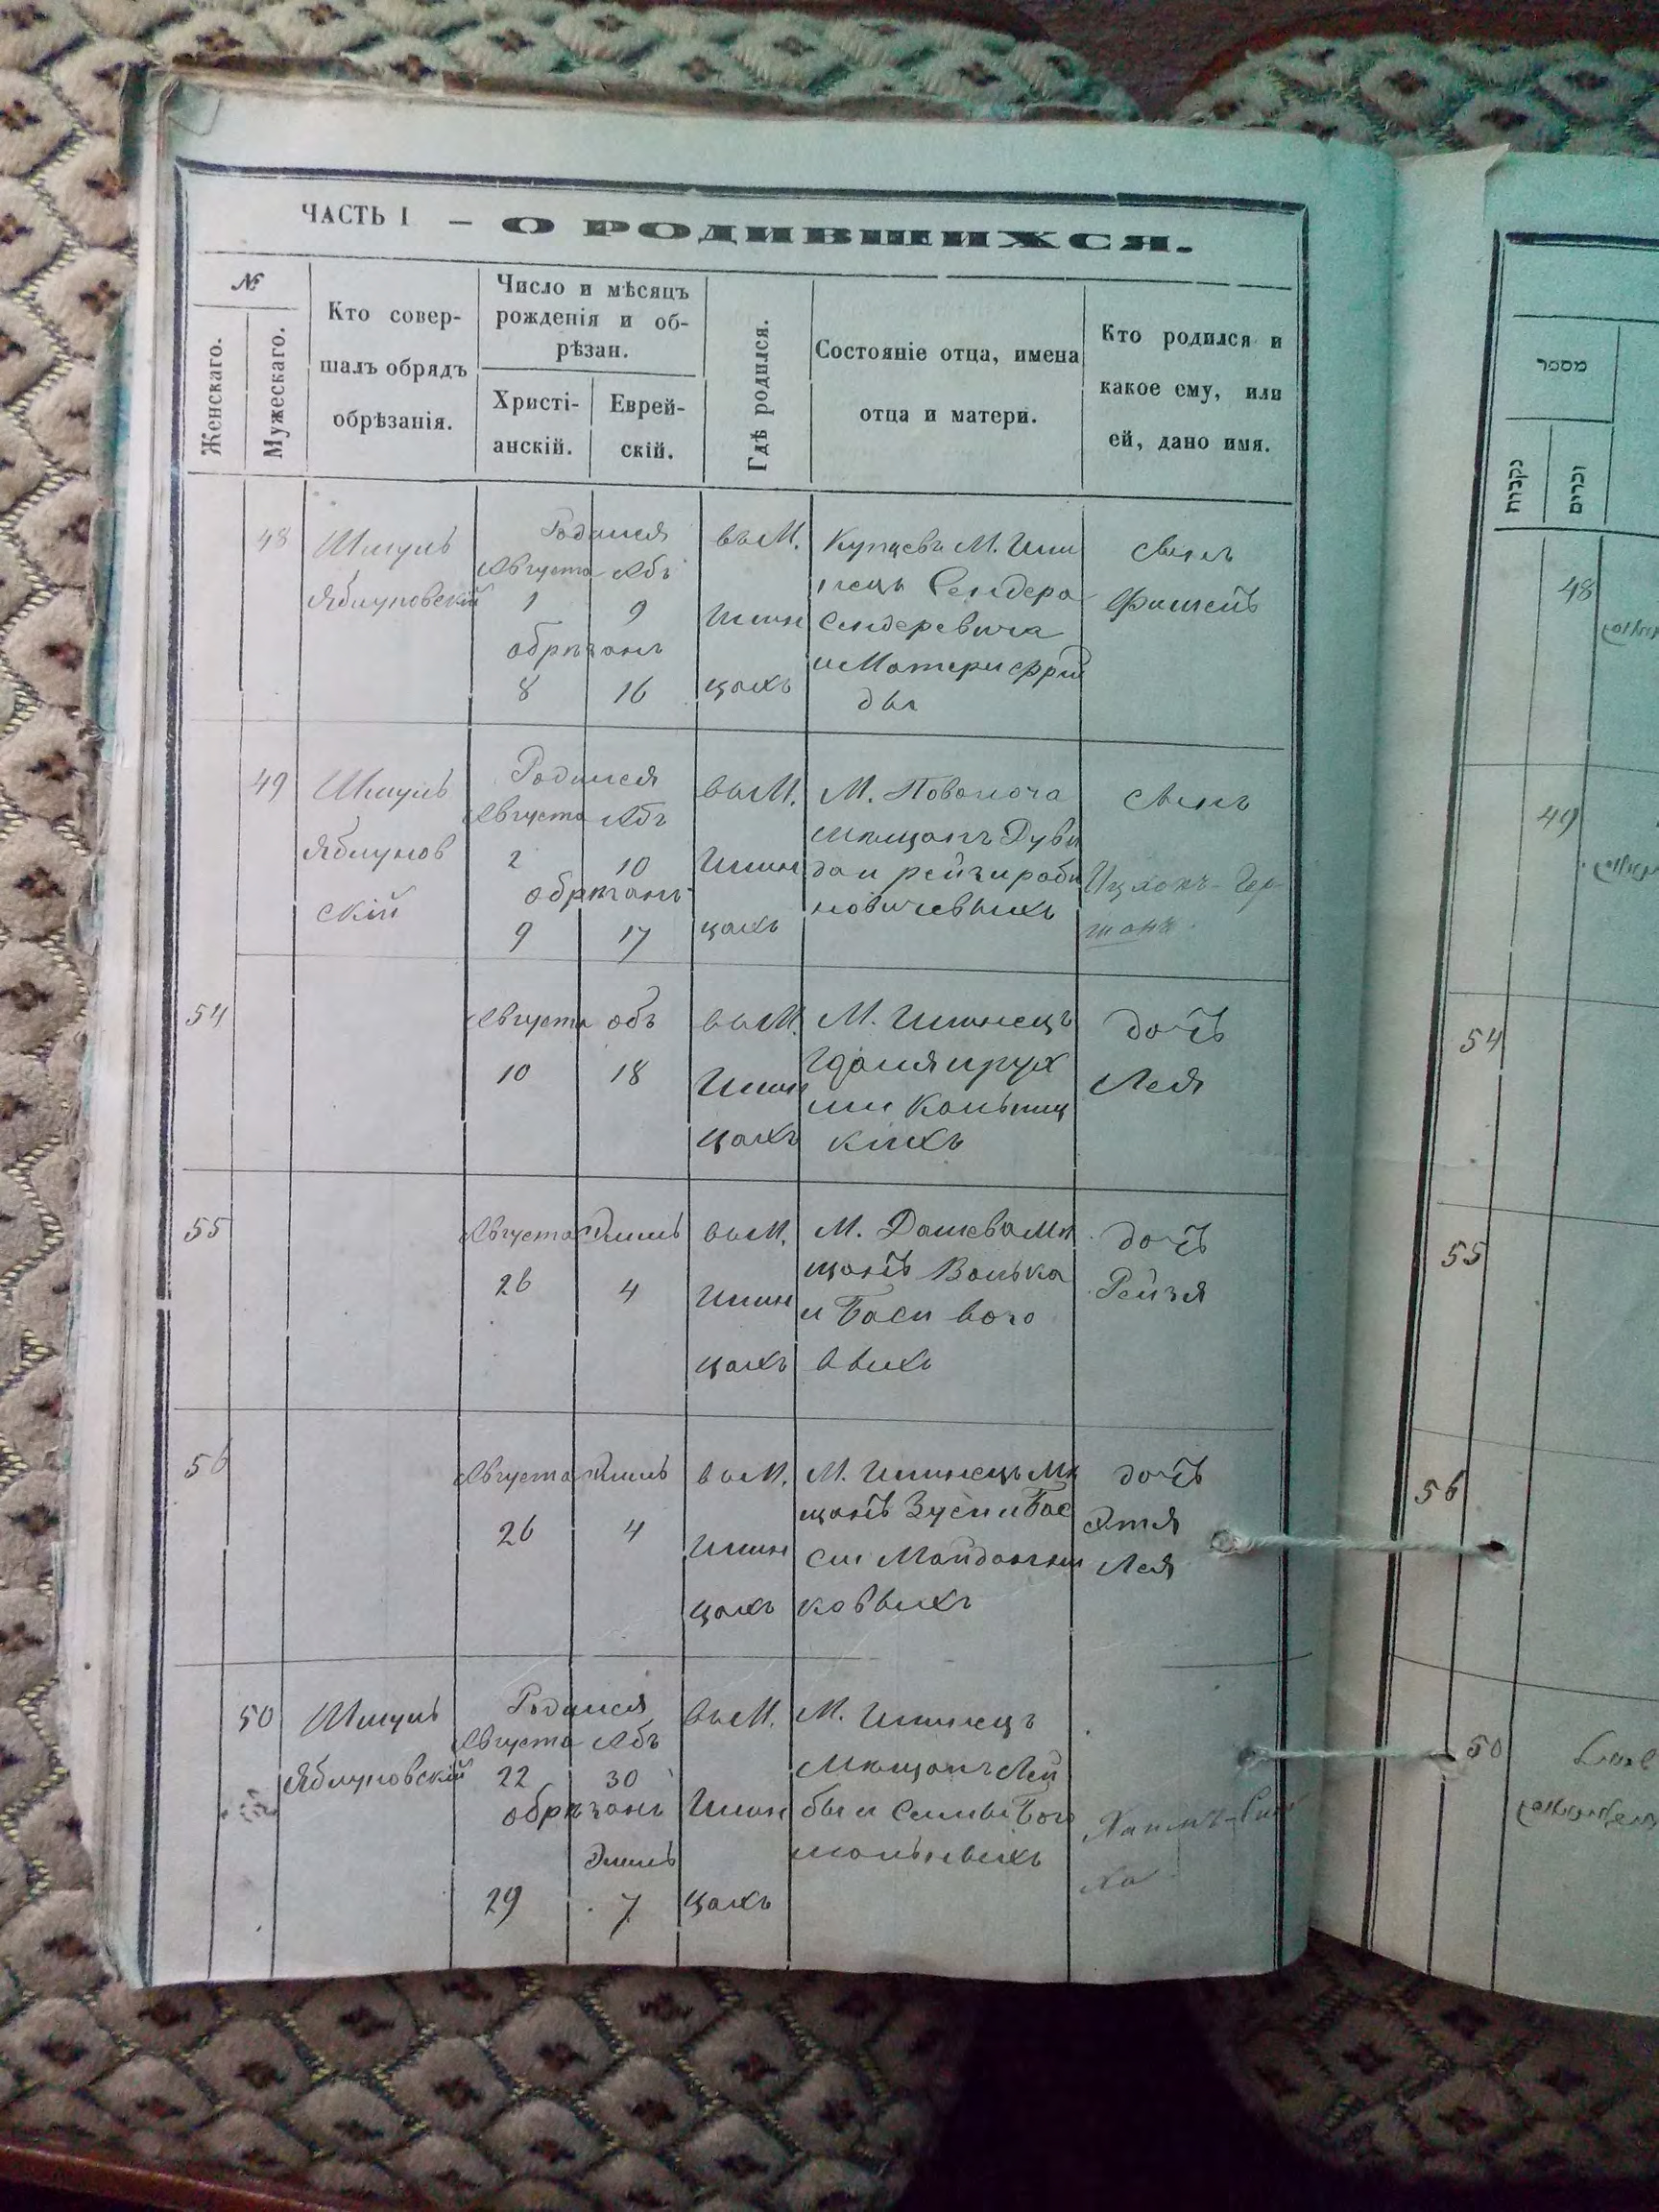 ЧАСТЬ I — О РОДИВШИХСЯ.
№
Женскаго.
Мужескаго.
Кто совер-
шалъ обрядъ
обрѣзанія.
Число и мѣсяцъ
рожденія и об-
рѣзан.
Христі-
анскій.
Еврей-
скій.
Гдѣ родился.
Состояніе отца, имена
отца и матери.
Кто родился и
какое ему, или
ей, дано имя.
48
Шмуль
Яблуновскій
Родился
Августа Абъ
1 9
обрѣзанъ
8 16
въ М.
Илин
цахъ
Купцевъ М. Или
нецъ Сендера
Сендеревича
и Матери Фрей
ды
сынъ
Фишель
49
Шмуль
Яблунов
скій
Родился
Августа Абъ
2 10
обрѣзанъ
9 17
въ М.
Илин
цахъ
М.
мѣщанъ Дуви
да и
новичевыхъ
сынъ
Ицхокъ-Гер
шонъ
54
Августа Абъ
10 18
въ М.
Илин
цахъ
М. Илинецъ
кихъ
дочь
Лея
55
Августа Элиль
26 4
въ М.
Илин
цахъ
М. Дашева мѣ
щанъ Волька
и Баси
выхъ
дочь
Рейзя
56
Августа Элиль
26 4
въ М.
Илин
цахъ
М. Илинецъ мѣ
щанъ Зуси и Бас
си Майданни
ковыхъ
дочь
Этя
Лея
50
Шмуль
Яблуновскій
Родился
Августа Абъ
22 30
обрѣзанъ
Элиль
29 7
въ М.
Илин
цахъ
М. Илинецъ
мѣщанъ Лей
бы и Симы Бого
мольныхъ
Хаимъ-Сим
ха
מספר
נקבות
זכרים
48
49
54
55
56
50